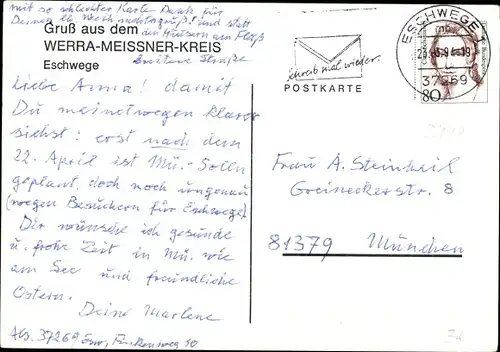 mit so schlechter Karte Dank für
Deinen lb. Weihnachtsgruß! und statt
Gruß aus dem an Häusern am Fluß
WERRA-MEISSNER-KREIS
Eschwege breitere Straße
Liebe Anna! damit
Du meinetwegen klarer
siehst: erst nach dem
22. April ist Mü.-Solln
geplant, doch noch ungenau
(wegen Besuchern für Eschwege)
Dir wünsche ich gesunde
u. frohe Zeit in Mü. wie
am See und freundliche
Ostern.
Deine Marlene
Abs. 37269 Esw, 10
schreib mal wieder.
POSTKARTE
ESCHWEGE 1
37269
80
Frau A. Steinheil
Greineckerstr. 8
81379 München